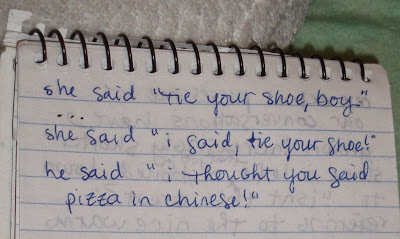 she said "tie your shoe, boy."
...
she said "i said, tie your shoe!"
he said "i thought you said
pizza in chinese!"